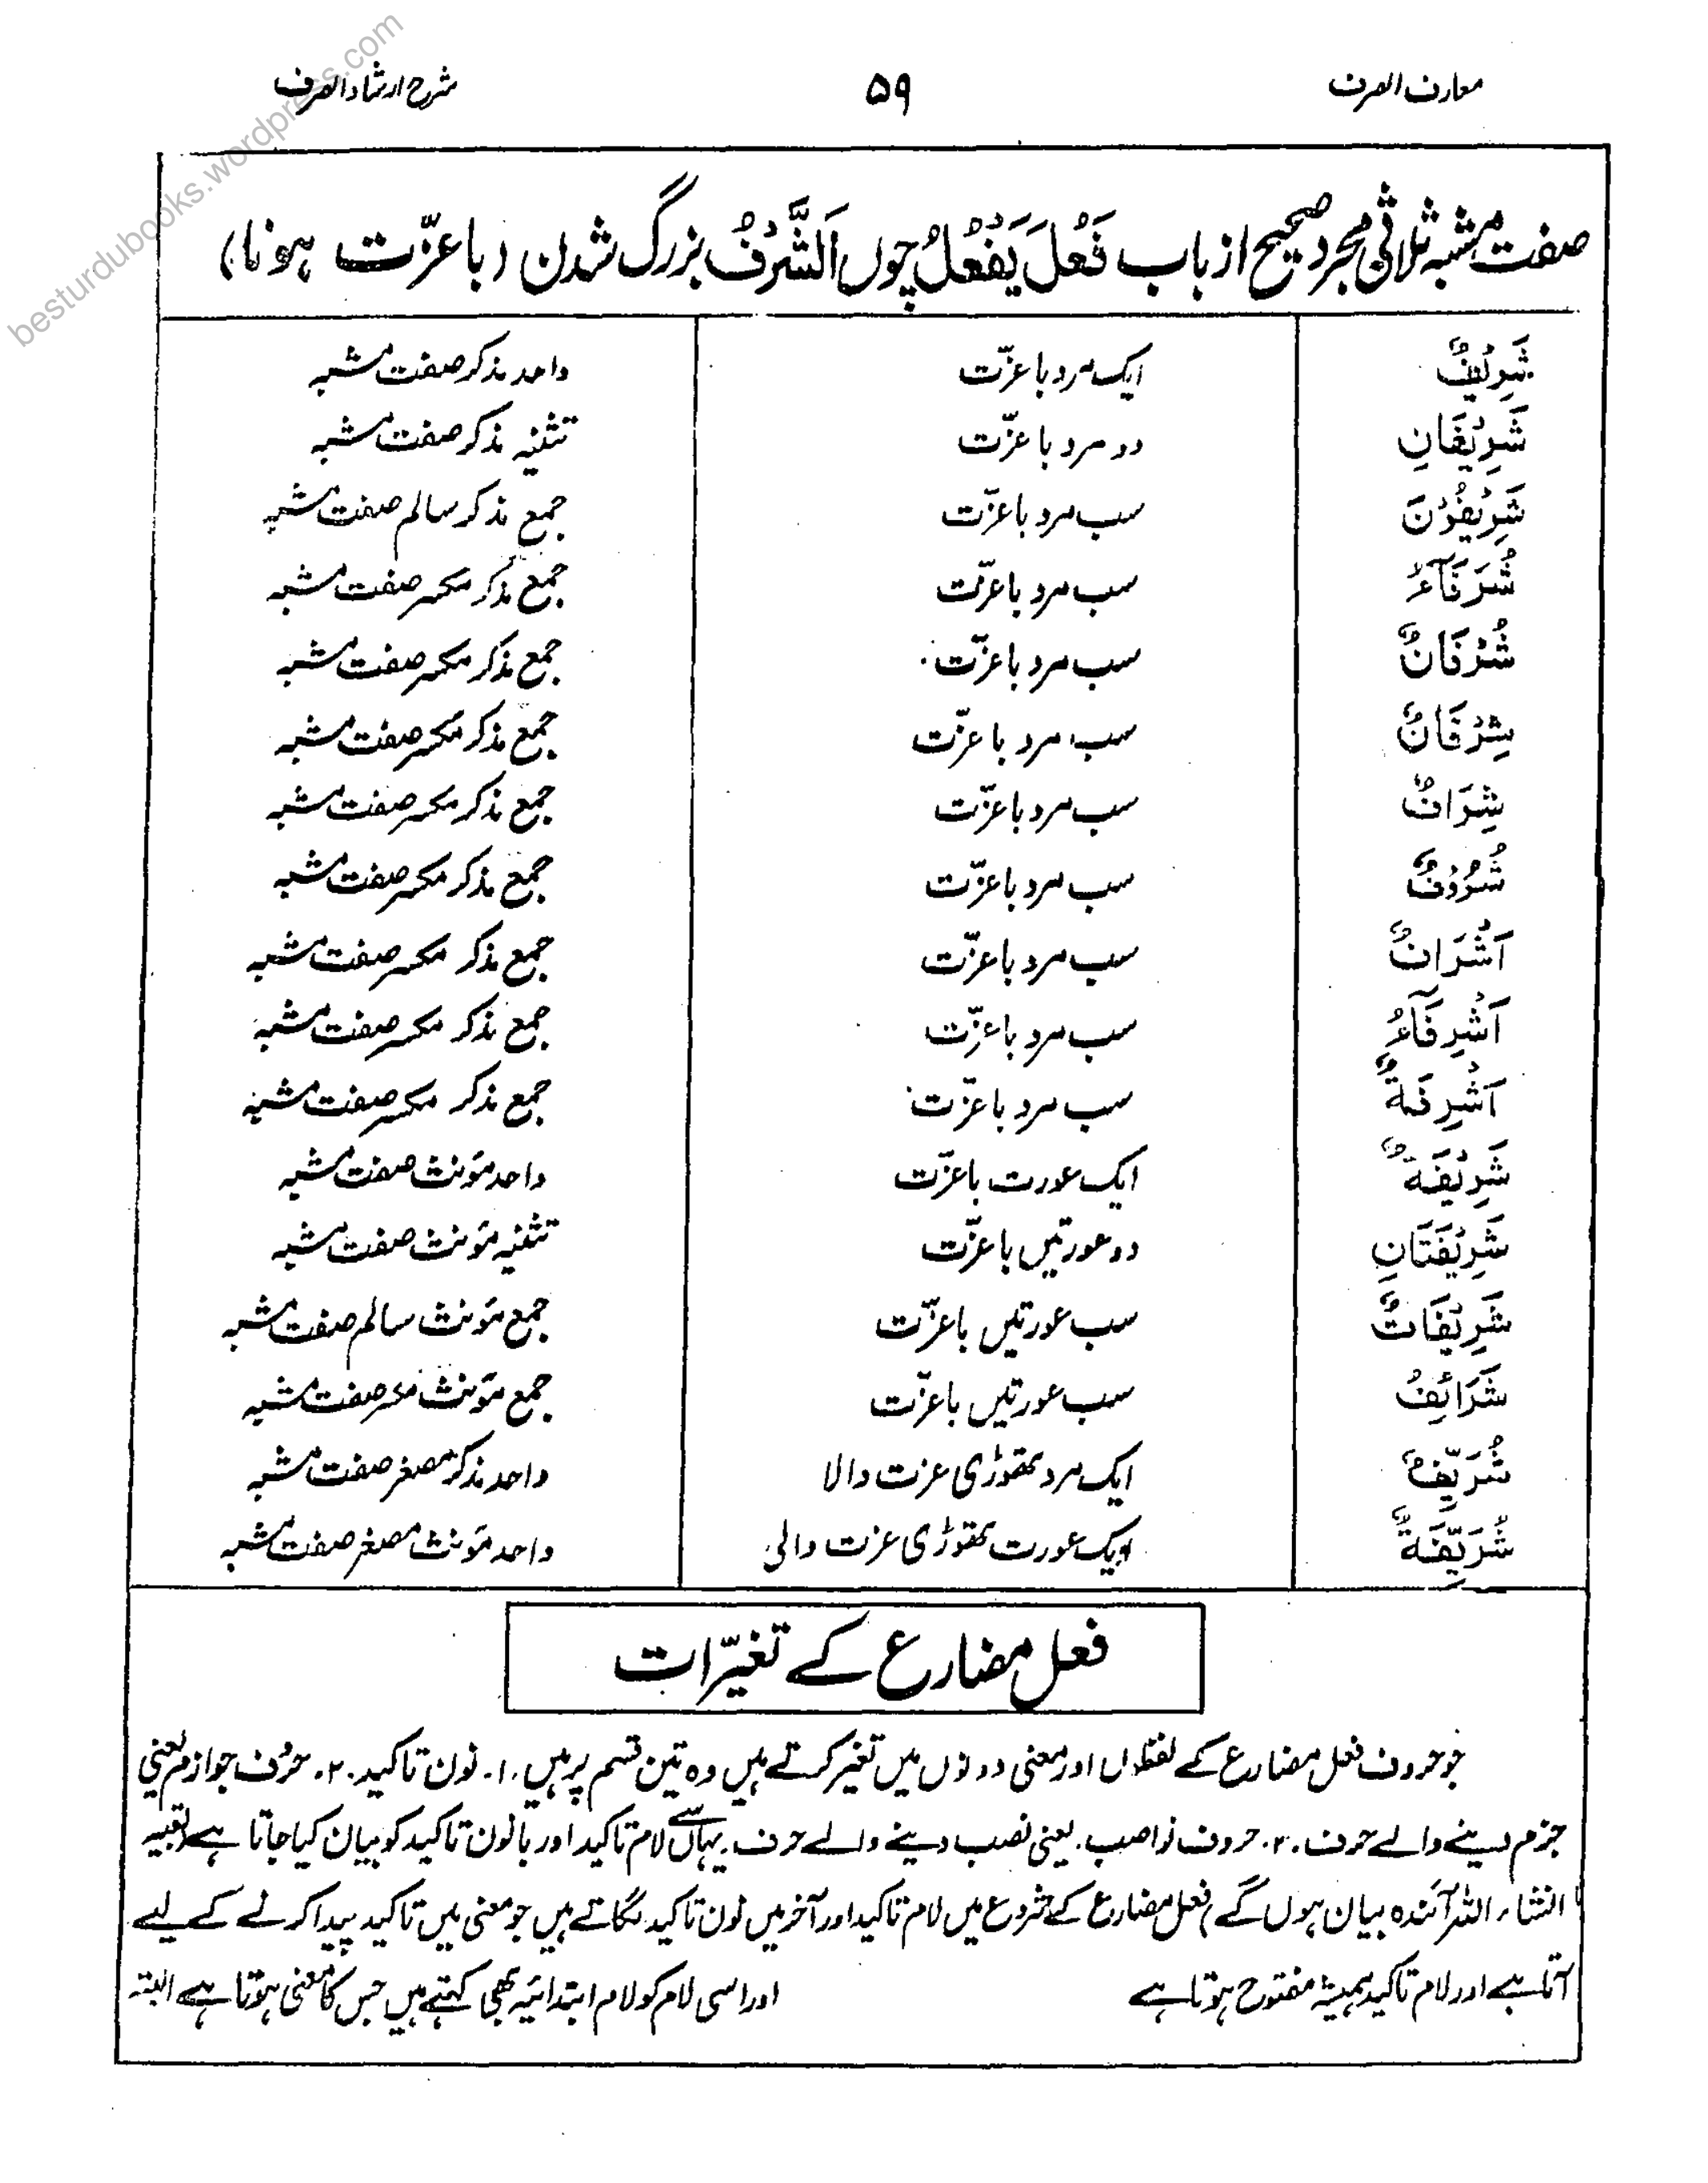 معارف الصرف
۵۹
شرح ارشاد الصرف
besturdubooks.wordpress.com
صفت مشبہ ثلاثی مجرد صحیح از باب فَعُلَ یَفْعُلُ چوں اَلشَّرْفُ بزرگ شدن (باعزّت ہونا)
شَرِيْفٌ ایک مرد باعزّت واحد مذکر صفت مشبہ
شَرِيْفَانِ دو مرد باعزّت تثنیہ مذکر صفت مشبہ
شَرِيْفُوْنَ سب مرد باعزّت جمع مذکر سالم صفت مشبہ
شُرَفَآءُ سب مرد باعزّت جمع مذکر مکسر صفت مشبہ
شُرْفَانٌ سب مرد باعزّت جمع مذکر مکسر صفت مشبہ
شِرْفَانٌ سب مرد باعزّت جمع مذکر مکسر صفت مشبہ
شِرَافٌ سب مرد باعزّت جمع مذکر مکسر صفت مشبہ
شُرُوْفٌ سب مرد باعزّت جمع مذکر مکسر صفت مشبہ
اَشْرَافٌ سب مرد باعزّت جمع مذکر مکسر صفت مشبہ
اَشْرِفَآءُ سب مرد باعزّت جمع مذکر مکسر صفت مشبہ
اَشْرِفَةٌ سب مرد باعزّت جمع مذکر مکسر صفت مشبہ
شَرِيْفَةٌ ایک عورت باعزّت واحد مؤنث صفت مشبہ
شَرِيْفَتَانِ دو عورتیں باعزّت تثنیہ مؤنث صفت مشبہ
شَرِيْفَاتٌ سب عورتیں باعزّت جمع مؤنث سالم صفت مشبہ
شَرَائِفُ سب عورتیں باعزّت جمع مؤنث مکسر صفت مشبہ
شُرَيِّفٌ ایک مرد تھوڑی عزت والا واحد مذکر مصغر صفت مشبہ
شُرَيِّفَةٌ ایک عورت تھوڑی عزت والی واحد مؤنث مصغر صفت مشبہ
فعل مضارع کے تغیّرات
جو حروف فعل مضارع کے لفظوں اور معنی دونوں میں تغیر کرتے ہیں وہ تین قسم پر ہیں ۔۱۔ نون تاکید ۔۲۔ حرف جوازم یعنی
جزم دینے والے حرف ۔۳۔ حروف نواصب۔ یعنی نصب دینے والے حرف۔ یہاں سے لام تاکید اور بانون تاکید کو بیان کیا جاتا ہے (بقیہ
انشاء اللہ آئندہ بیان ہوں گے) فعل مضارع کے شروع میں لام تاکید اور آخر میں نون تاکید لگاتے ہیں جو معنی میں تاکید پیدا کرنے کے لیے
آتا ہے اور لام تاکید ہمیشہ مفتوح ہوتا ہے اور اسی لام کو لام ابتدائیہ بھی کہتے ہیں جس کا معنی ہوتا ہے البتہ